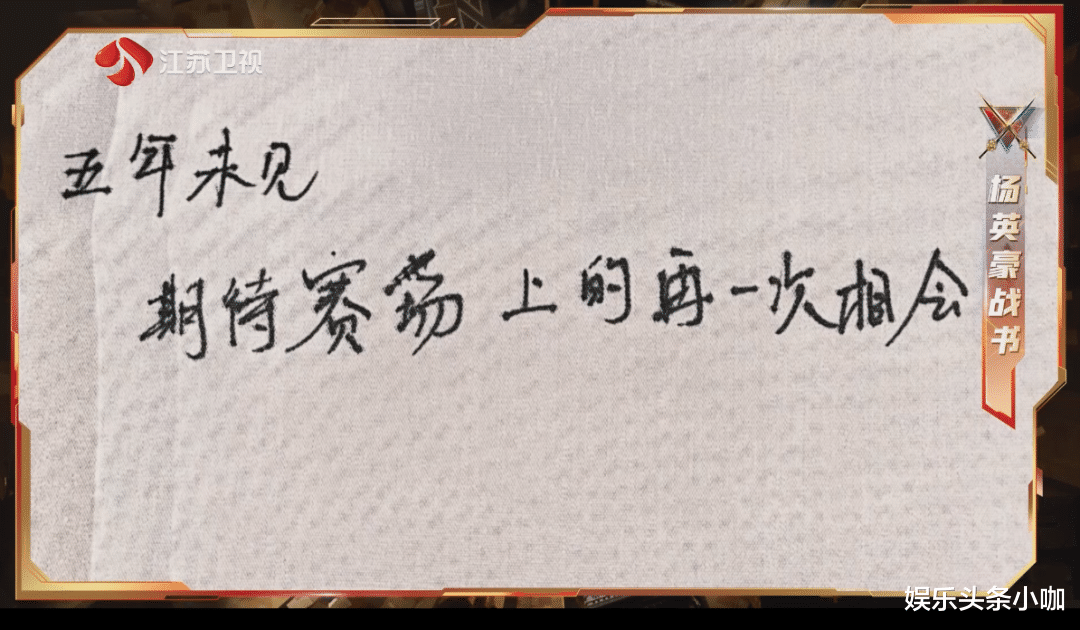 江苏卫视
五年未见
期待赛荡上的再一次相会
杨英豪战书
娱乐头条小咖